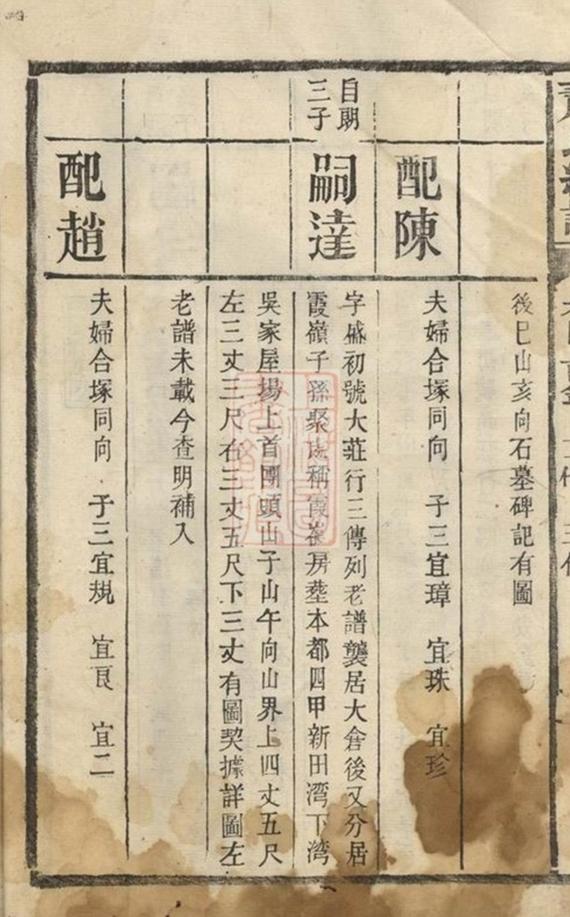 後巳山亥向石墓碑記有圖
配陳
夫婦合塚同向 子三宜璋 宜珠 宜珍
自朗三子
嗣達
字盛初號大莊行三傳列老譜襲居大倉後又分居
霞嶺子孫聚處稱霞嶺房塟本都四甲新田湾下湾
吳家屋場上首團頭山子山午向山界上四丈五尺
左三丈三尺右三丈五尺下三丈有圖契據詳圖左
老譜未載今查明補入
配趙
夫婦合塚同向 子三宜規 宜良 宜二